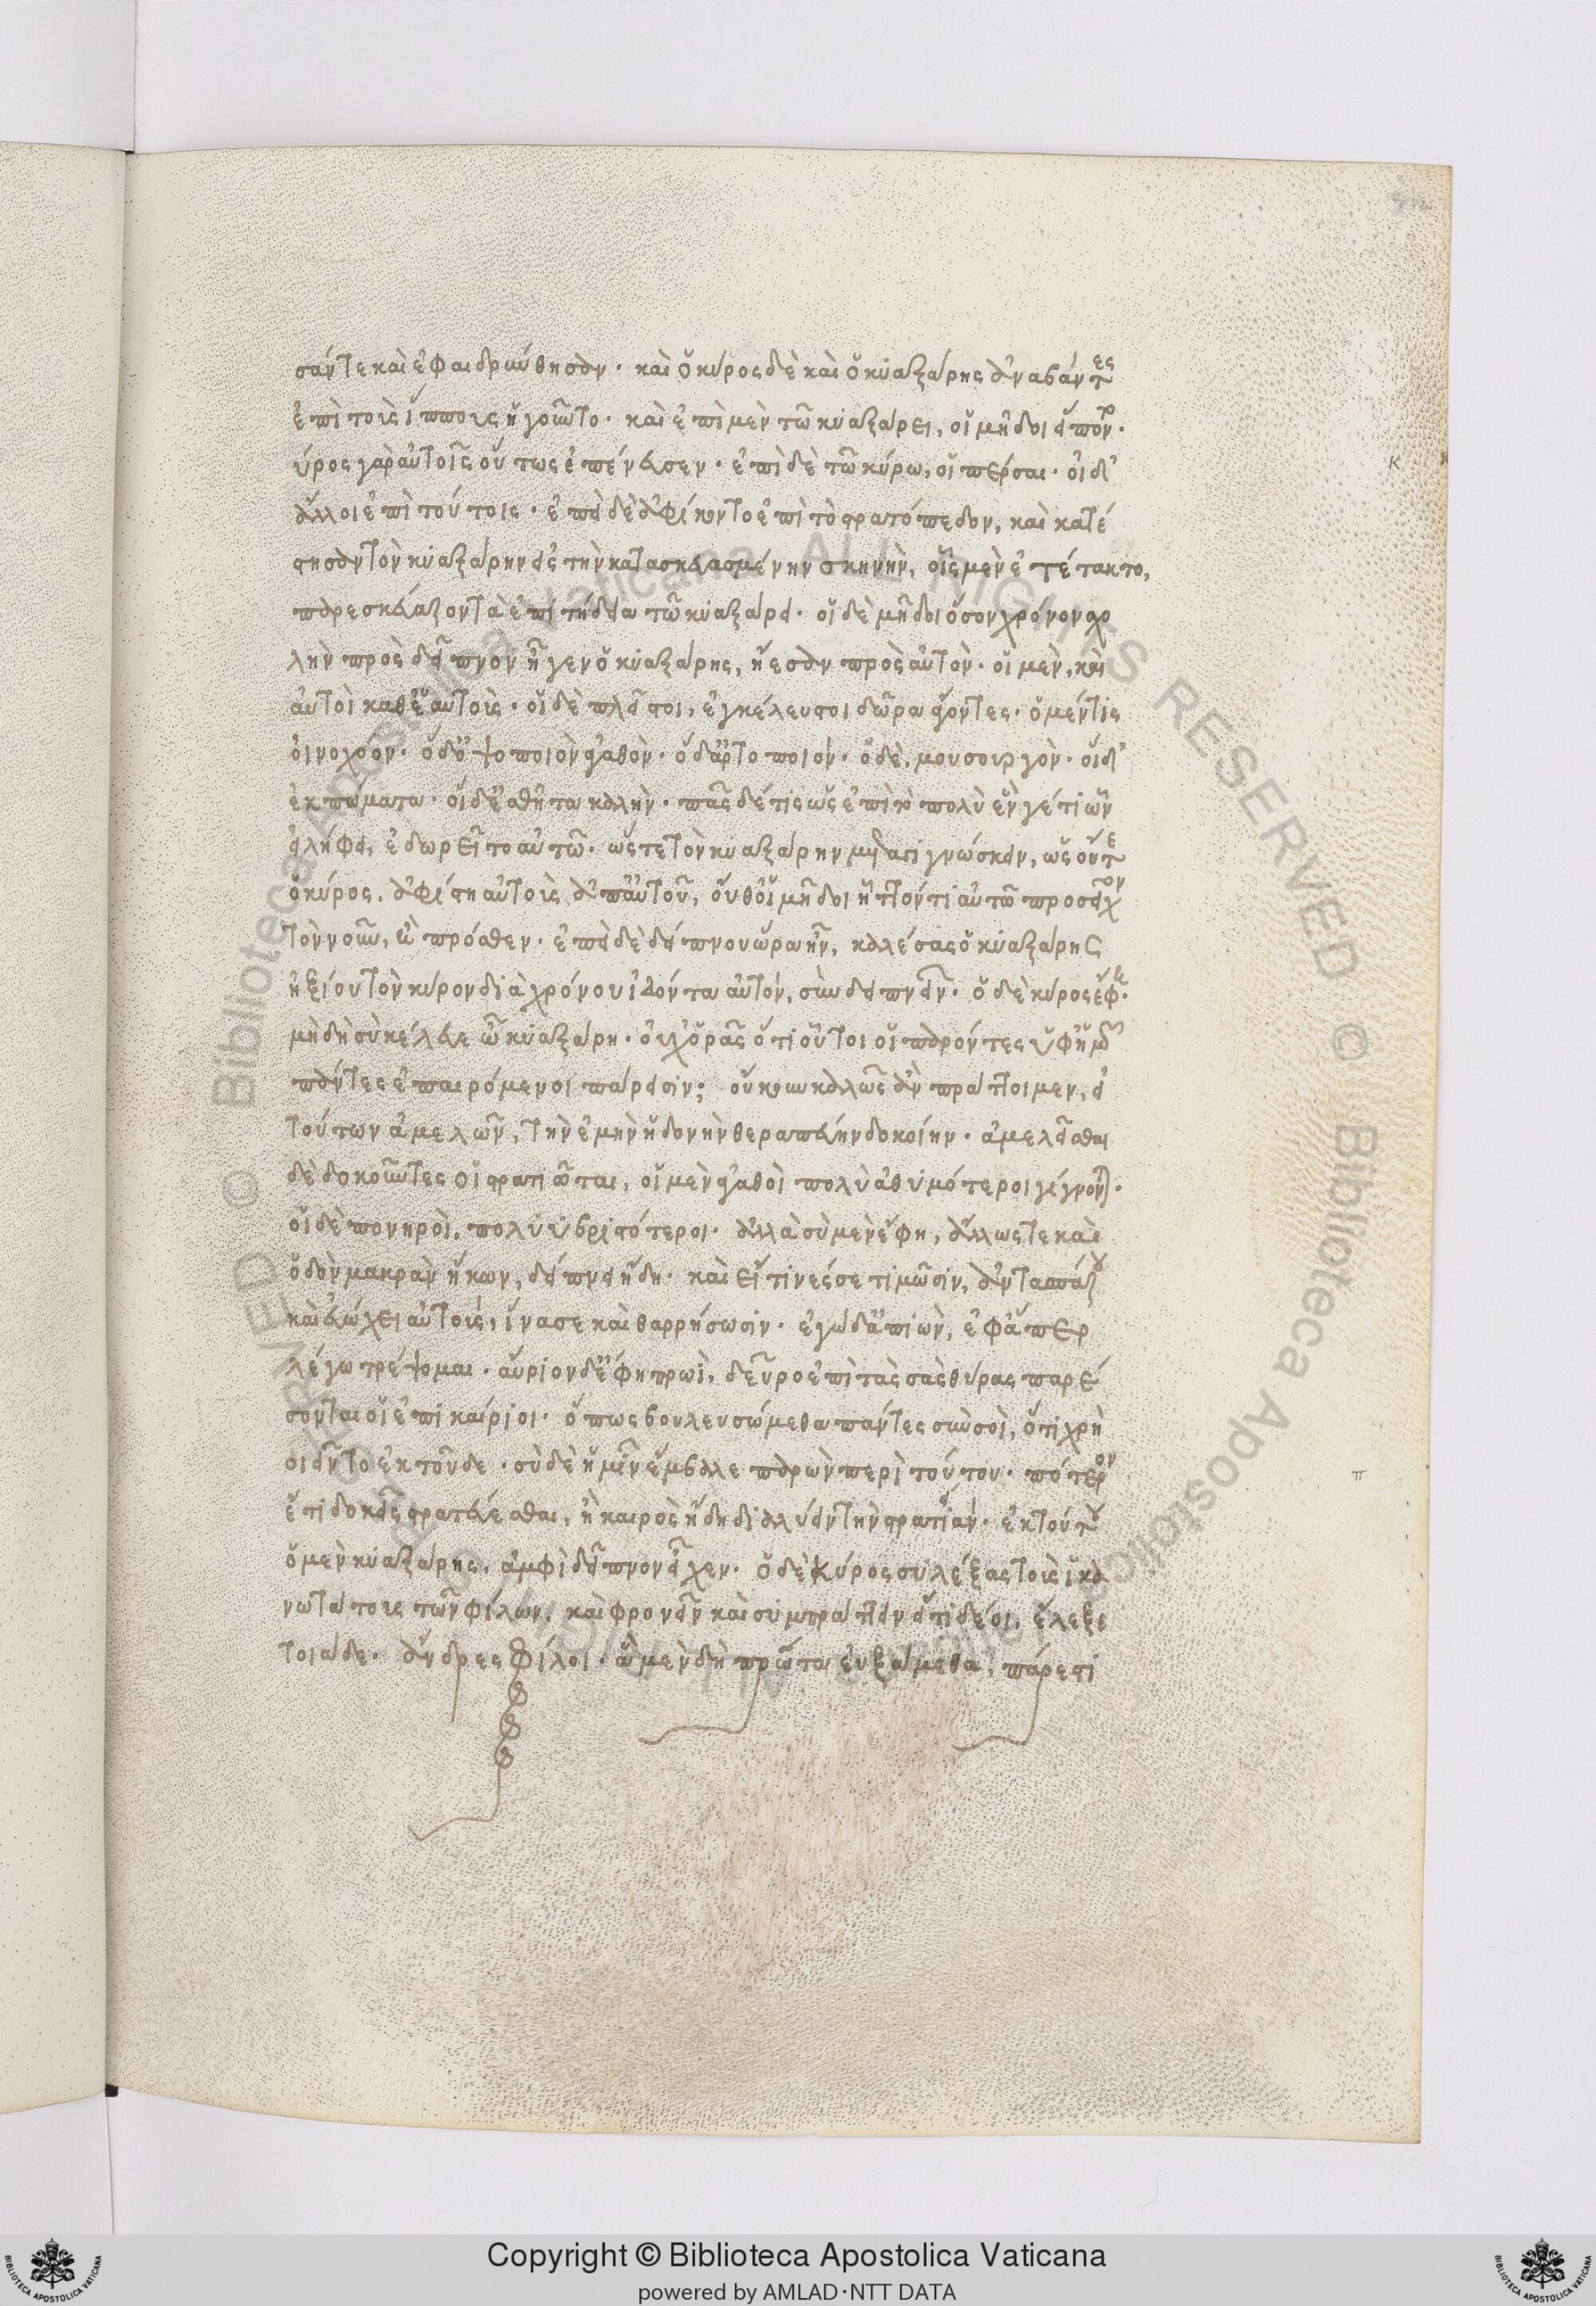 σάν τε καὶ ἐφαιδρύνθησαν· καὶ ὁ κύρος δὲ καὶ ὁ κυαξάρης ἀναβάντες
ἐπὶ τοὺς ἵππους ἡγοῦντο· καὶ ἐπὶ μὲν τῶ κυαξάρει, οἱ μῆδοι εἵποντο·
ύρος γὰρ αὐτοῖς οὕτως ἐπένευσεν· ἐπὶ δὲ τῶ κύρω, οἱ πέρσαι· οἱ δ'
ἄλλοι ἐπὶ τούτοις· ἐπεὶ δὲ ἀφίκοντο ἐπὶ τὸ στρατόπεδον, καὶ κατέ
στησαν τὸν κυαξάρην εἰς τὴν κατασκευασμένην σκηνὴν, οἷς μὲν ἐτέτακτο,
παρεσκεύαζον τὰ ἐπιτήδεια τῶ κυαξάρει· οἱ δὲ μῆδοι ὅσον χρόνον σχο
λὴν πρὸς δεῖπνον ἦγεν ὁ κυαξάρης, ἤεσαν πρὸς αὐτὸν· οἱ μὲν, καὶ
αὐτοὶ καθ' ἑαυτοὺς· οἱ δὲ πλεῖστοι, ἐγκέλευστοι δῶρα ἄγοντες· ὁ μέν τις
οἰνοχόον· ὁ δ' ὀψοποιὸν ἀγαθὸν· ὁ δ' ἀρτοποιόν· ὁ δὲ, μουσουργὸν· οἱ δ'
ἐκπώματα· οἱ δ' ἐσθῆτα καλὴν· πᾶς δέ τις ὡς ἐπὶ τὸ πολὺ ἓν γέ τι ὧν
εἰλήφει, ἐδωρεῖτο αὐτῶ· ὥς τε τὸν κυαξάρην μεταγιγνώσκειν, ὡς οὔτε
ὁ κύρος, ἀφίστη αὐτοὺς ἀπ' αὐτοῦ, οὔθ' οἱ μῆδοι ἧττόν τι αὐτῶ προσεῖχον
τὸν νοῦν, ἢ πρόσθεν· ἐπεὶ δὲ δείπνου ὥρα ἦν, καλέσας ὁ κυαξάρης
ἠξίου τὸν κύρον διὰ χρόνου ἰδόντα αὐτόν, συνδειπνεῖν· ὁ δὲ κύρος ἔφη·
μὴ δὴ σὺ κέλευε ὦ κυαξάρη· οὐχ ὁρᾶς ὅτι οὗτοι οἱ παρόντες ὑφ' ἡμῶν
πάντες ἐπαιρόμενοι πάρεισιν; οὔκουν καλῶς ἂν πράττοιμεν, εἰ
τούτων ἀμελῶν, τὴν ἐμὴν ἡδονὴν θεραπεύειν δοκοίην· ἀμελεῖσθαι
δὲ δοκοῦντες οἱ στρατιῶται, οἱ μὲν ἀγαθοὶ πολὺ ἀθυμότεροι γίγνονται·
οἱ δὲ πονηροὶ, πολὺ ὑβριστότεροι· ἀλλὰ σὺ μὲν ἔφη, ἄλλως τε καὶ
ὁδὸν μακρὰν ἥκων, δείπνει ἤδη· καὶ εἴ τινές σε τιμῶσιν, ἀντασπάζου
καὶ εὐώχει αὐτοὺς, ἵνα σε καὶ θαρρήσωσιν· ἐγὼ δ' ἀπιὼν, ἐφ' ἅπερ
λέγω τρέψομαι· αὔριον δ' ἔφη πρωῒ, δεῦρο ἐπὶ τὰς σὰς θύρας παρέ
σονται οἱ ἐπικαίριοι· ὅπως βουλευσώμεθα πάντες σὺν σοὶ, ὅτι χρὴ
ποιεῖν τὸ ἐκ τοῦδε· σὺ δὲ ἡμῖν ἔμβαλε παρὼν περὶ τούτου· πότερον
ἔτι δοκεῖ στρατεύεσθαι, ἢ καιρὸς ἤδη διαλύειν τὴν στρατιάν· ἐκ τούτου
ὁ μὲν κυαξάρης, ἀμφὶ δεῖπνον εἶχεν· ὁ δὲ κύρος συλλέξας τοὺς ἱκα
νωτάτους τῶν φίλων, καὶ φρονεῖν καὶ συμπράττειν εἴ τι δέοι, ἔλεξε
τοιάδε· ἄνδρες φίλοι· ἃ μὲν δὴ πρῶτα εὐξάμεθα, πάρεστι
κ
π
Copyright © Biblioteca Apostolica Vaticana
powered by AMLAD·NTT DATA